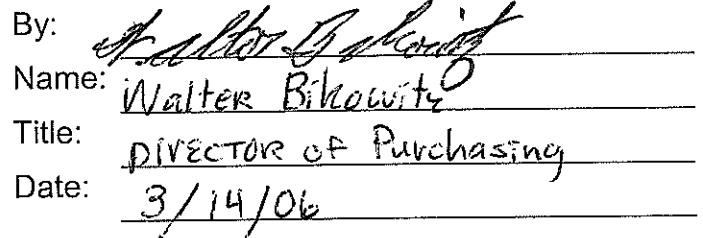 By: Walter Bikowitz
Name: Walter Bikowitz
Title: DIRECTOR OF Purchasing
Date: 3/14/06